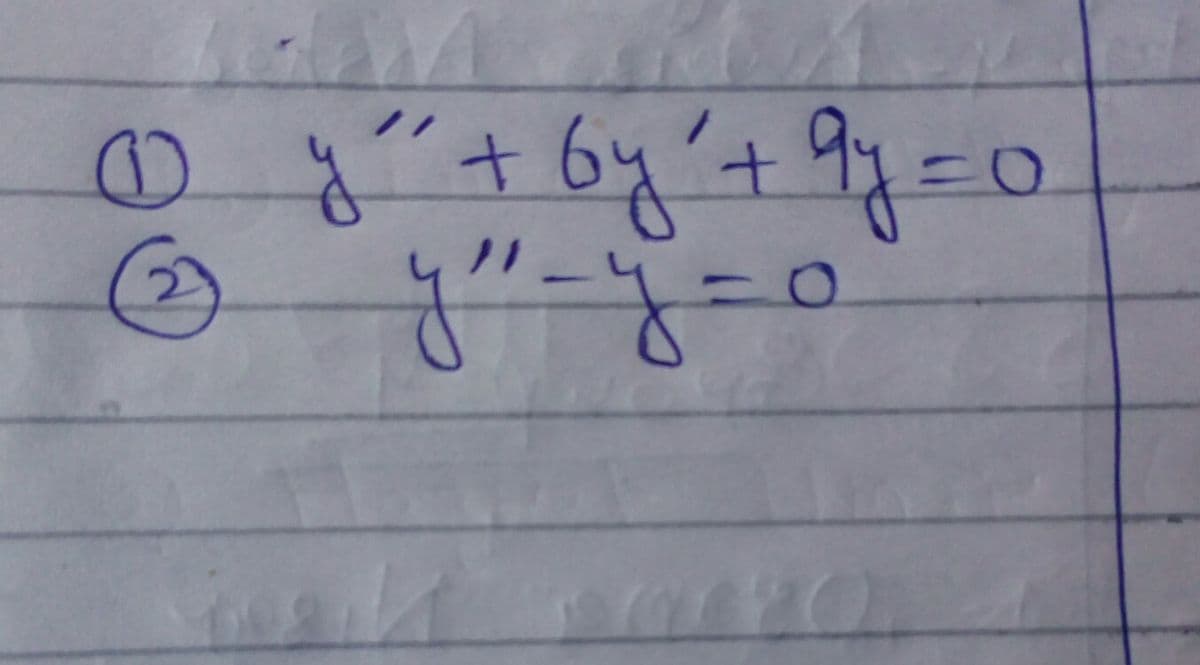 ① y'' + 6y' + 9y = 0
② y'' - y = 0